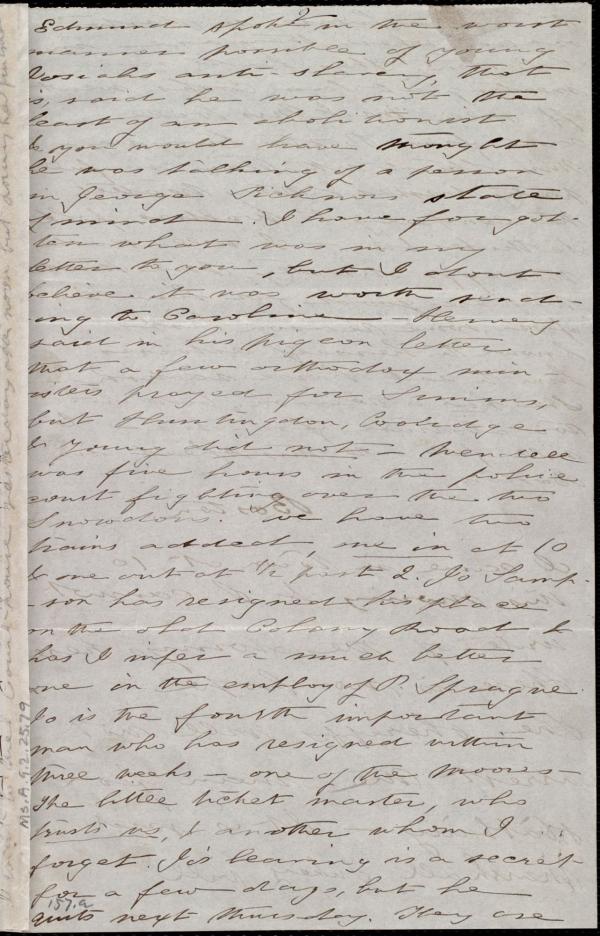 Edmund spoke in the worst
manner possible of young
Josiahs anti-slavery, that
is, said he was not the
least of an abolitionist
& you would have thought
he was talking of a person
in George Ticknors state
of mind. I have forgot-
ten what was in my
letter to you, but I dont
believe it was worth send-
ing to Caroline - Hervey
said in his pigeon letter
that a few orthodox min-
isters prayed for Simms,
but Huntingdon, Coolidge
& Young did not - Wendell
was five hours in the police
court fighting over the two
Snowdons. We have two
trains added, one in at 10
& one out at 1/2 past 2. Jo Samp-
-son has resigned his place
on the old Colony Road &
has I infer a much better
one in the employ of P. Sprague.
Jo is the fourth important
man who has resigned within
three weeks - one of the Moores -
The little ticket master, who
trusts us, & another whom I
forget. Jo's leaving is a secret
for a few days, but he
quits next thursday. They are
Ms.A.9.2.25.79
157.a